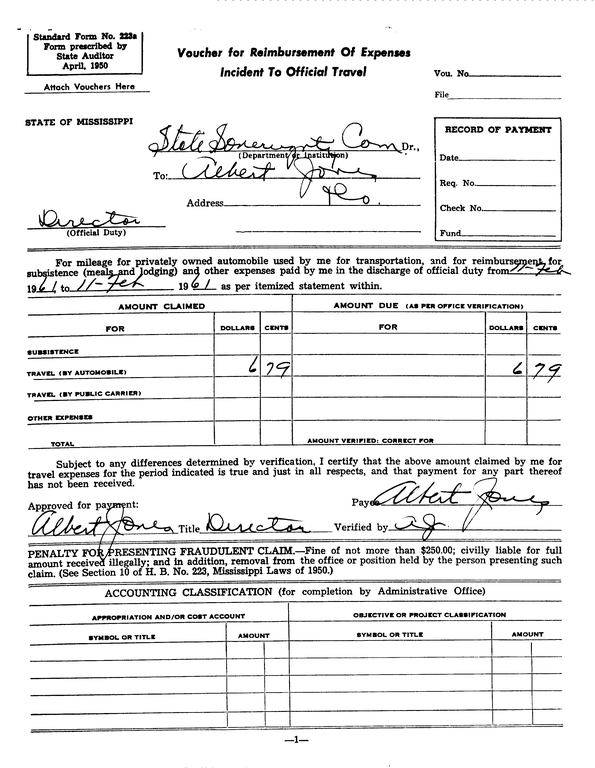 Standard Form No. 223a
Form prescribed by
State Auditor
April, 1950
Attach Vouchers Here
Voucher for Reimbursement Of Expenses
Incident To Official Travel
Vou. No.
File
STATE OF MISSISSIPPI
State Sovereignty Com Dr.,
(Department or Institution)
To: Albert Jones
Address
Director
(Official Duty)
RECORD OF PAYMENT
Date
Req. No.
Check No.
Fund
For mileage for privately owned automobile used by me for transportation, and for reimbursement for
subsistence (meals and lodging) and other expenses paid by me in the discharge of official duty from 11-Feb
1961, to 11-Feb 1961 as per itemized statement within.
AMOUNT CLAIMED
AMOUNT DUE (AS PER OFFICE VERIFICATION)
FOR DOLLARS CENTS FOR DOLLARS CENTS
SUBSISTENCE
TRAVEL (BY AUTOMOBILE) 6 79 6 79
TRAVEL (BY PUBLIC CARRIER)
OTHER EXPENSES
TOTAL AMOUNT VERIFIED: CORRECT FOR
Subject to any differences determined by verification, I certify that the above amount claimed by me for
travel expenses for the period indicated is true and just in all respects, and that payment for any part thereof
has not been received.
Payee Albert Jones
Approved for payment:
Albert Jones Title Director Verified by AJ
PENALTY FOR PRESENTING FRAUDULENT CLAIM.—Fine of not more than $250.00; civilly liable for full
amount received illegally; and in addition, removal from the office or position held by the person presenting such
claim. (See Section 10 of H. B. No. 223, Mississippi Laws of 1950.)
ACCOUNTING CLASSIFICATION (for completion by Administrative Office)
APPROPRIATION AND/OR COST ACCOUNT OBJECTIVE OR PROJECT CLASSIFICATION
SYMBOL OR TITLE AMOUNT SYMBOL OR TITLE AMOUNT
—1—